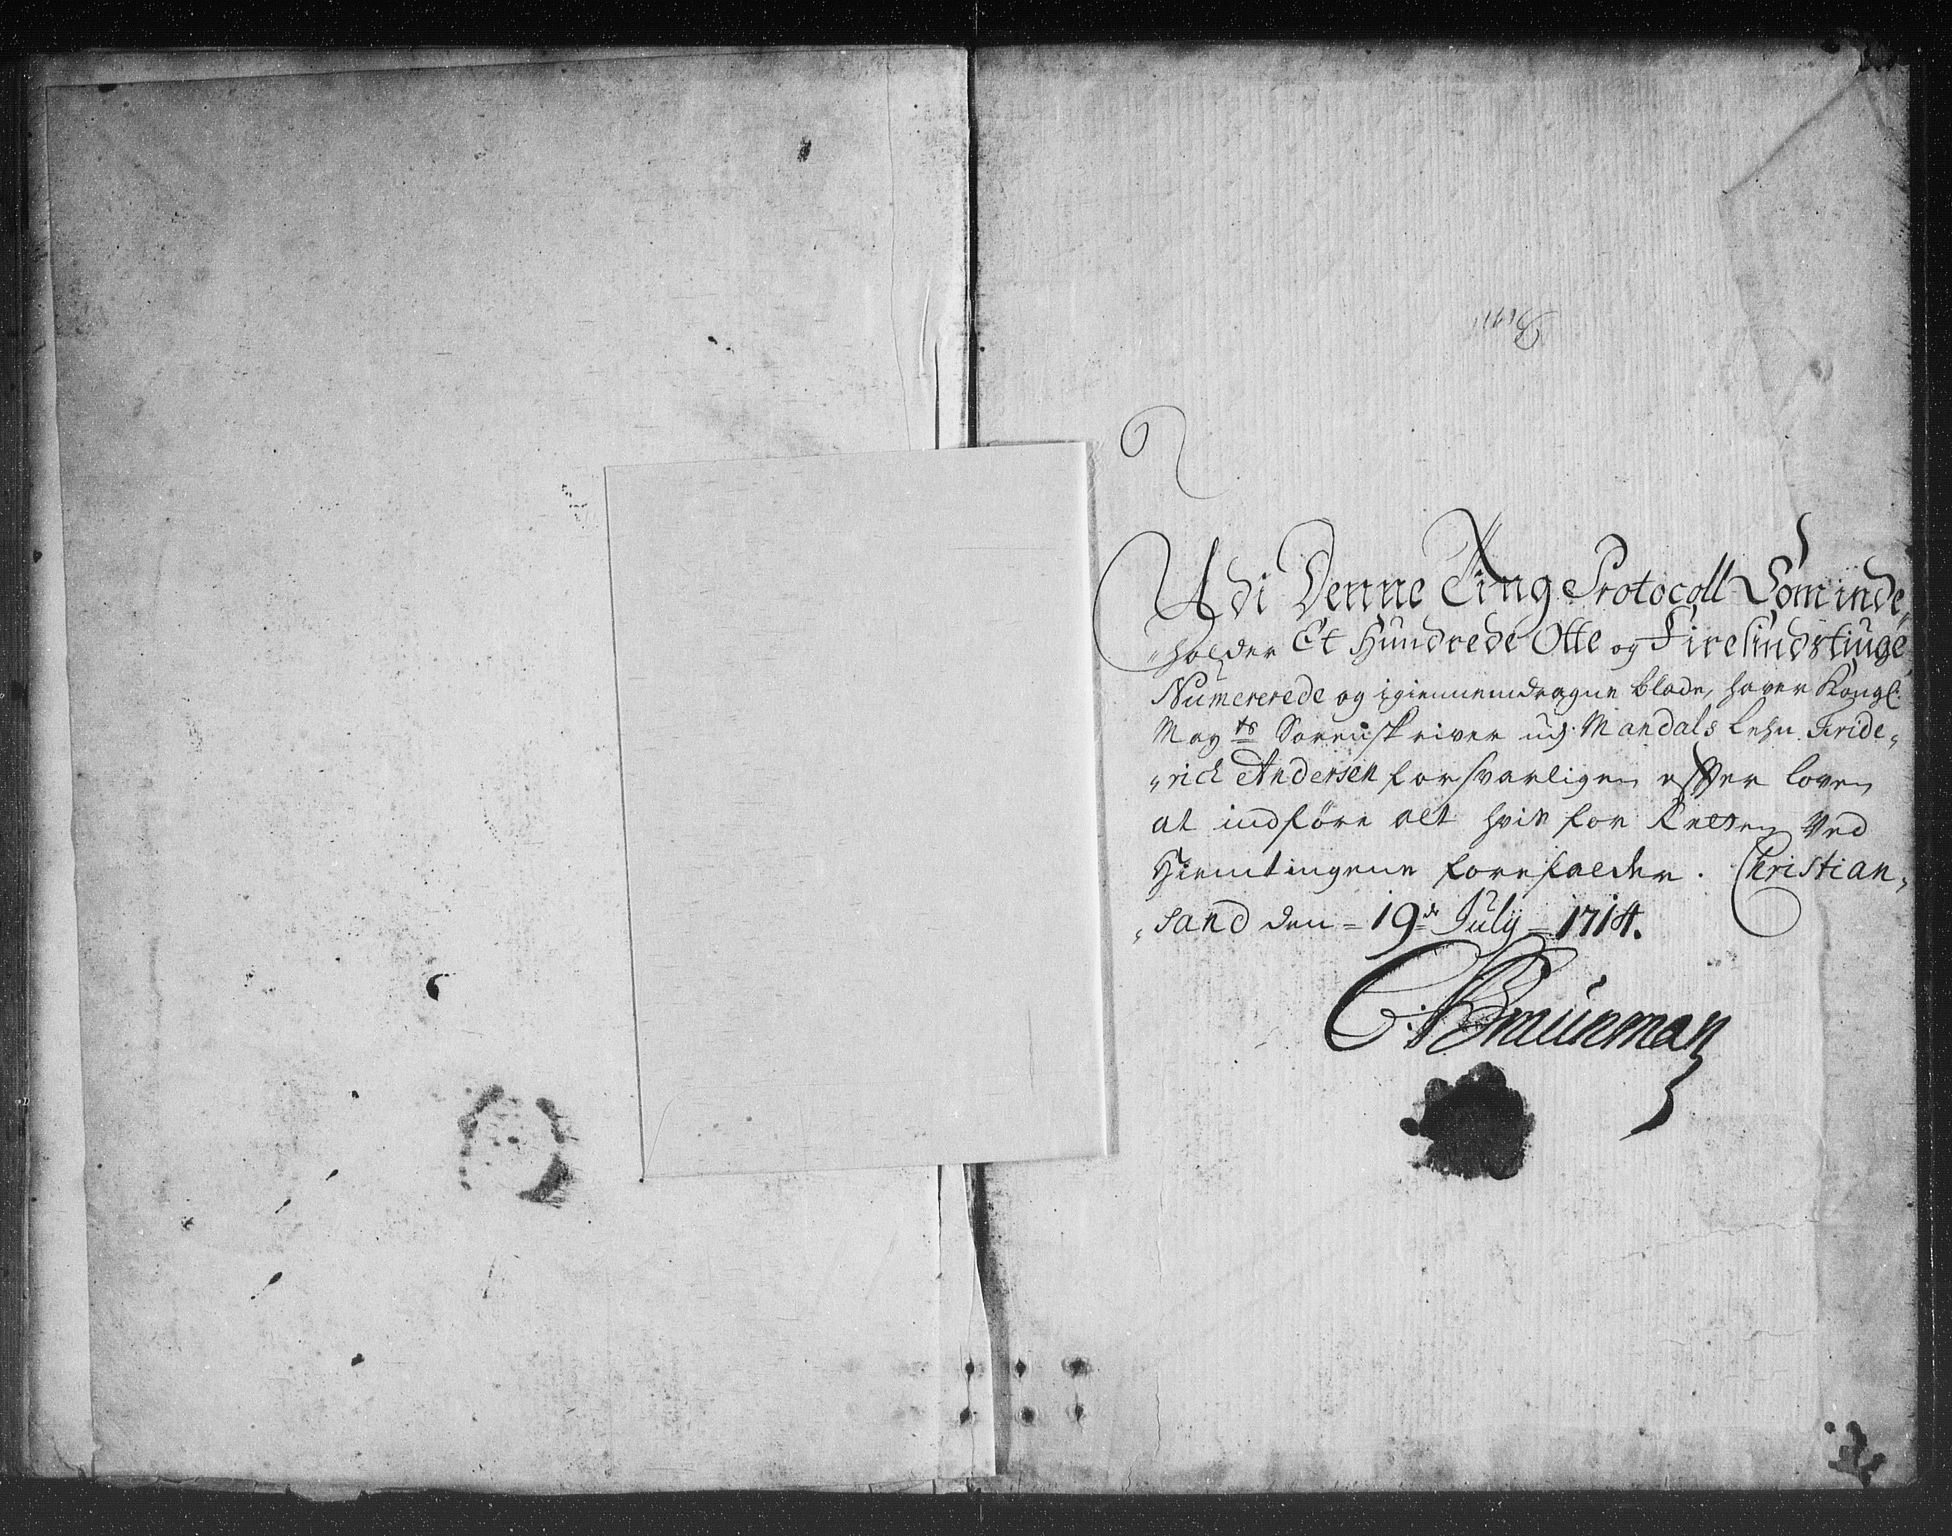 Udi Denne Ting Protocoll Som inde„
„holder Et Hundrede Otte og Firesindstiuge
Numererede og igiennemdragne blade, haver Kongl:
May.ts Sorenskriver udj Mandals Lehn Fride„
„rich Andersen forsvarligen effter loven
at indføre alt hvis for Retten Ved
Hiemtingene forefalder. Christian„
„sand den = 19de July = 1714.